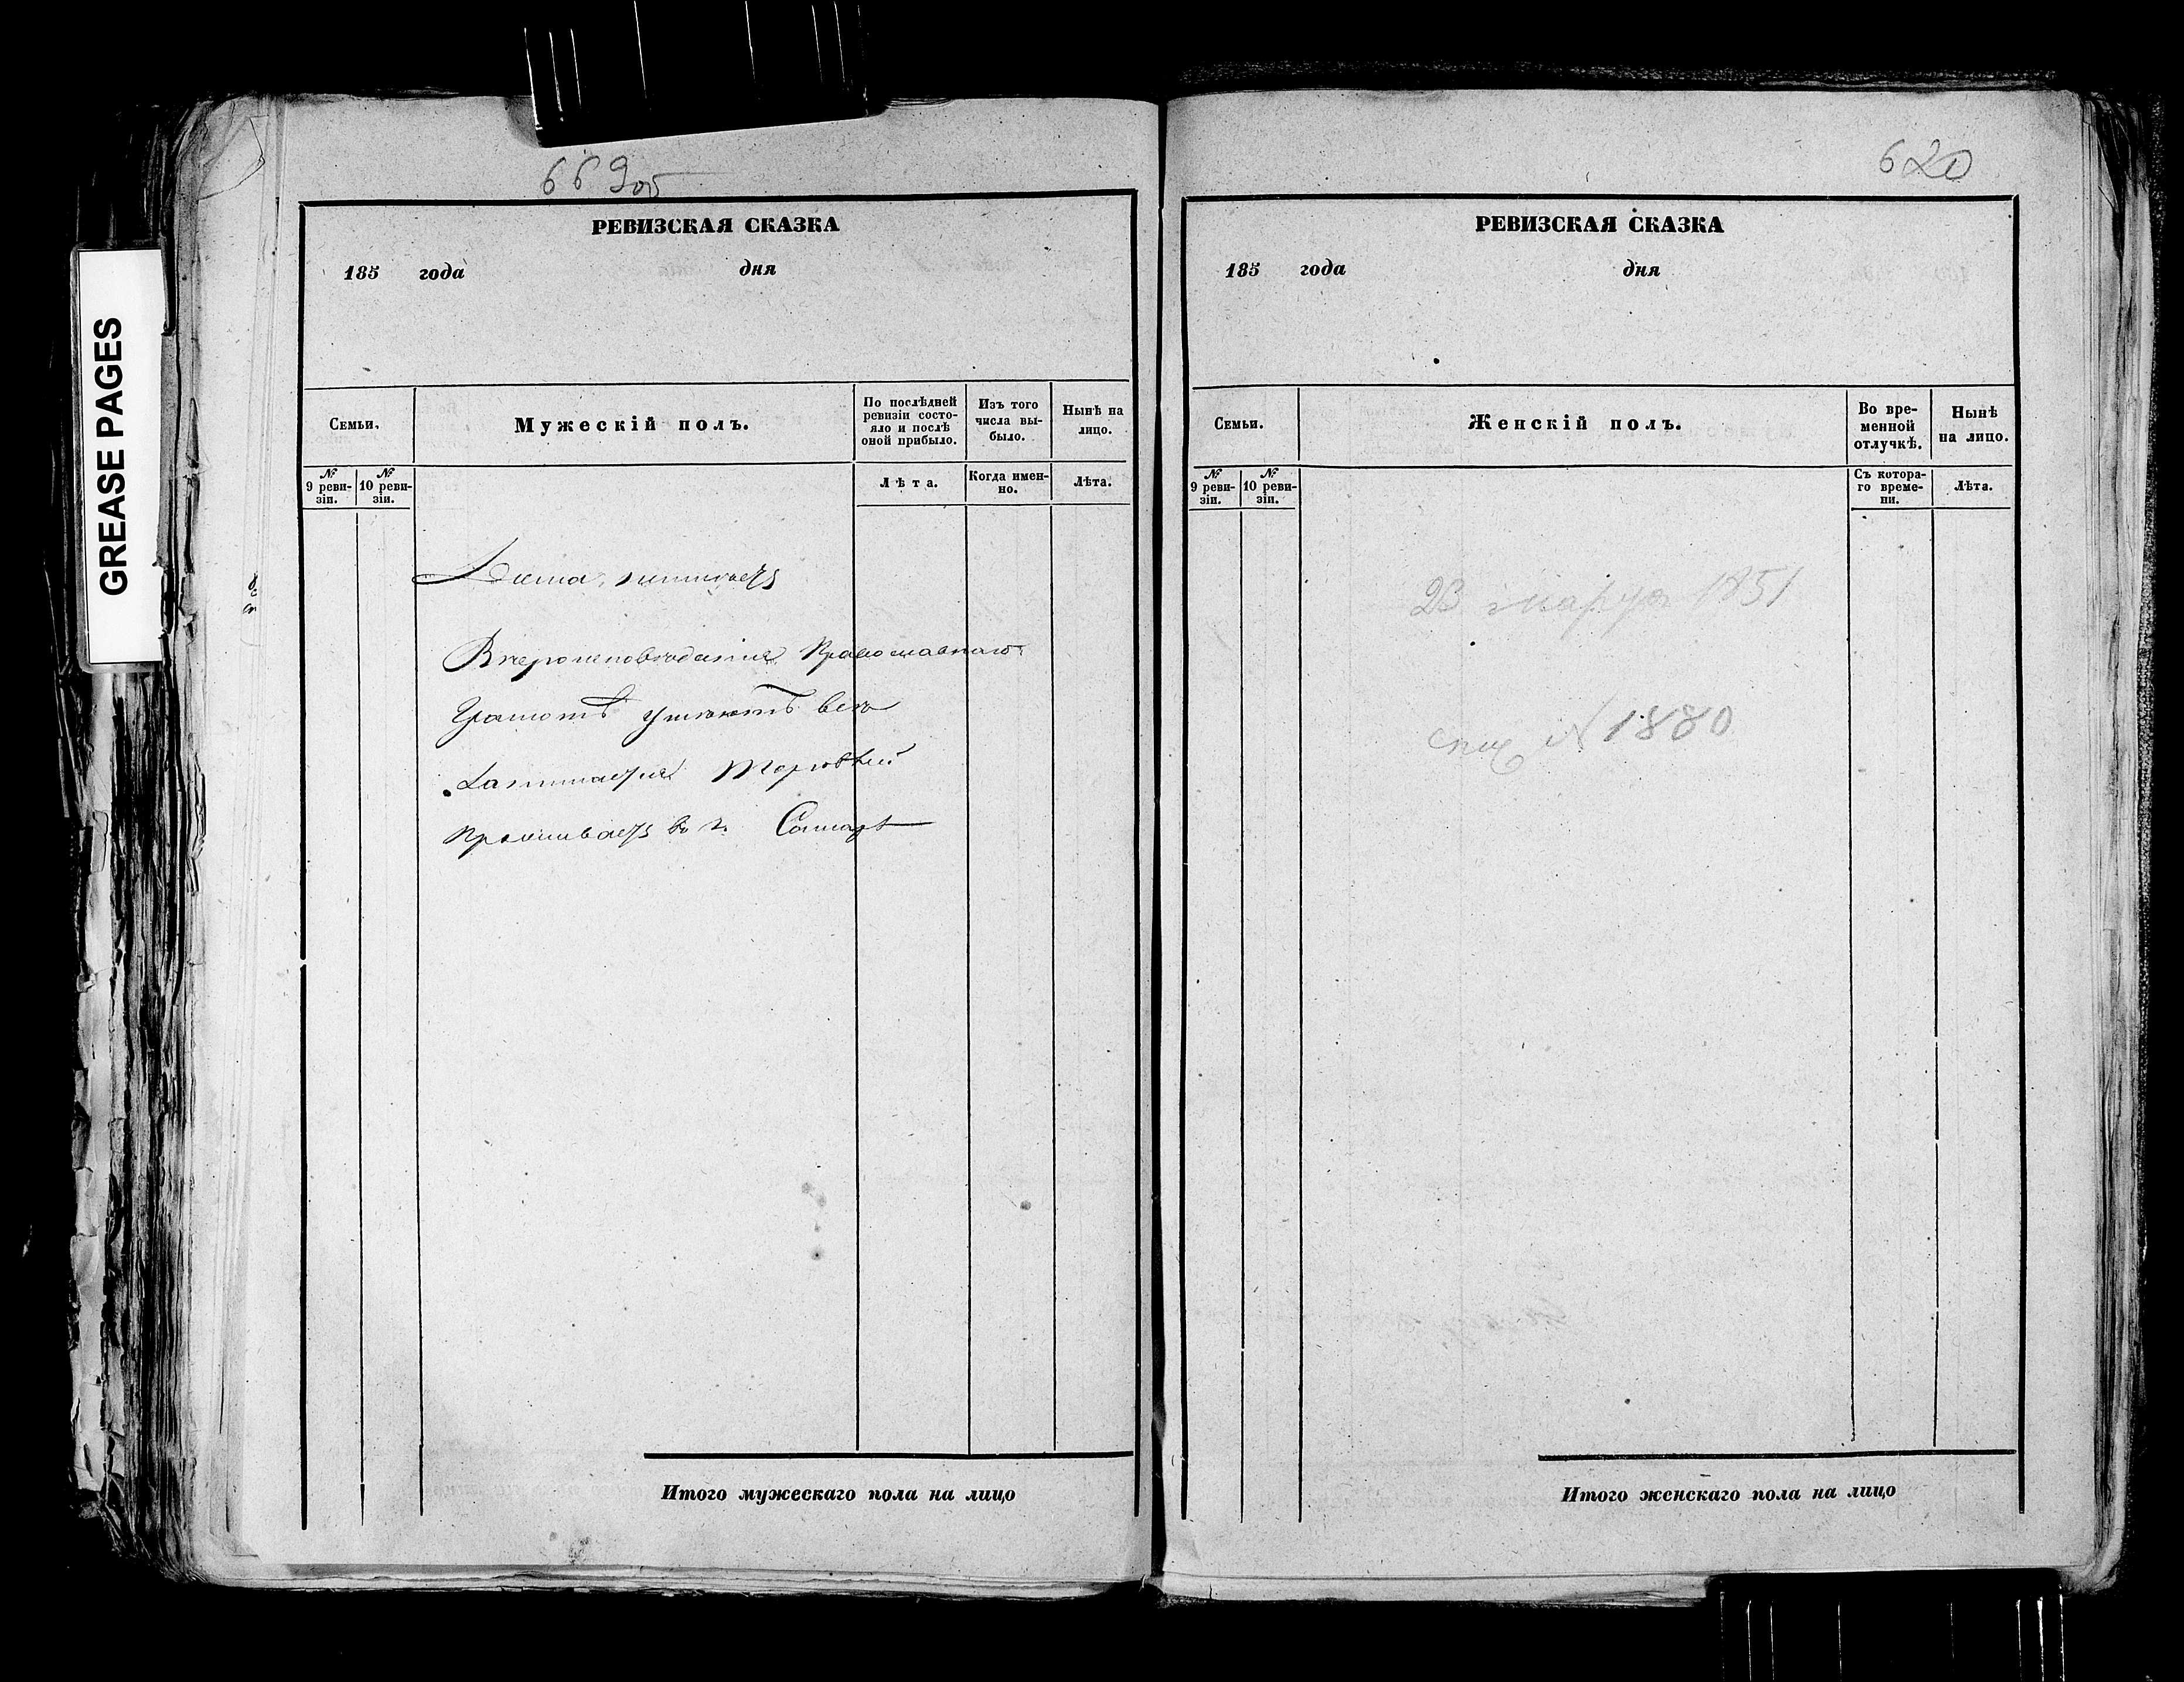 GREASE PAGES
669об
РЕВИЗСКАЯ СКАЗКА
185 года дня
Семьи.
Мужескій полъ.
По послѣдней ревизіи состо-
яло и послѣ оной прибыло.
Изъ того числа вы-
было.
Нынѣ на лицо.
№ 9 реви-
зіи.
№ 10 реви-
зіи.
Лѣта.
Когда имен-
но.
Лѣта.
Вѣроисповѣданія Православнаго
Грамотѣ умѣютъ всѣ
Занимается Торговлей
Проживаетъ въ г. Самарѣ
Итого мужескаго пола на лицо
620
РЕВИЗСКАЯ СКАЗКА
185 года дня
Семьи.
Женскій полъ.
Во вре-
менной
отлучкѣ.
Нынѣ
на лицо.
№ 9 реви-
зіи.
№ 10 реви-
зіи.
Съ котора-
го време-
ни.
Лѣта.
23 марта 1851
№ 1880
Итого женскаго пола на лицо